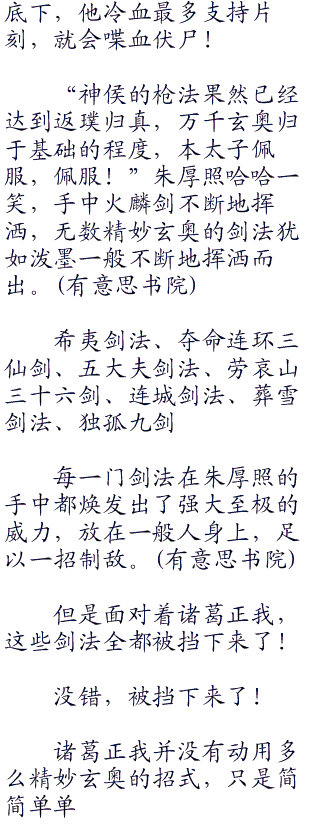 底下，他冷血最多支持片
刻，就会喋血伏尸！
“神侯的枪法果然已经
达到返璞归真，万千玄奥归
于基础的程度，本太子佩
服，佩服！”朱厚照哈哈一
笑，手中火麟剑不断地挥
洒，无数精妙玄奥的剑法犹
如泼墨一般不断地挥洒而
出。(有意思书院)
希夷剑法、夺命连环三
仙剑、五大夫剑法、劳哀山
三十六剑、连城剑法、葬雪
剑法、独孤九剑
每一门剑法在朱厚照的
手中都焕发出了强大至极的
威力，放在一般人身上，足
以一招制敌。(有意思书院)
但是面对着诸葛正我，
这些剑法全都被挡下来了！
没错，被挡下来了！
诸葛正我并没有动用多
么精妙玄奥的招式，只是简
简单单